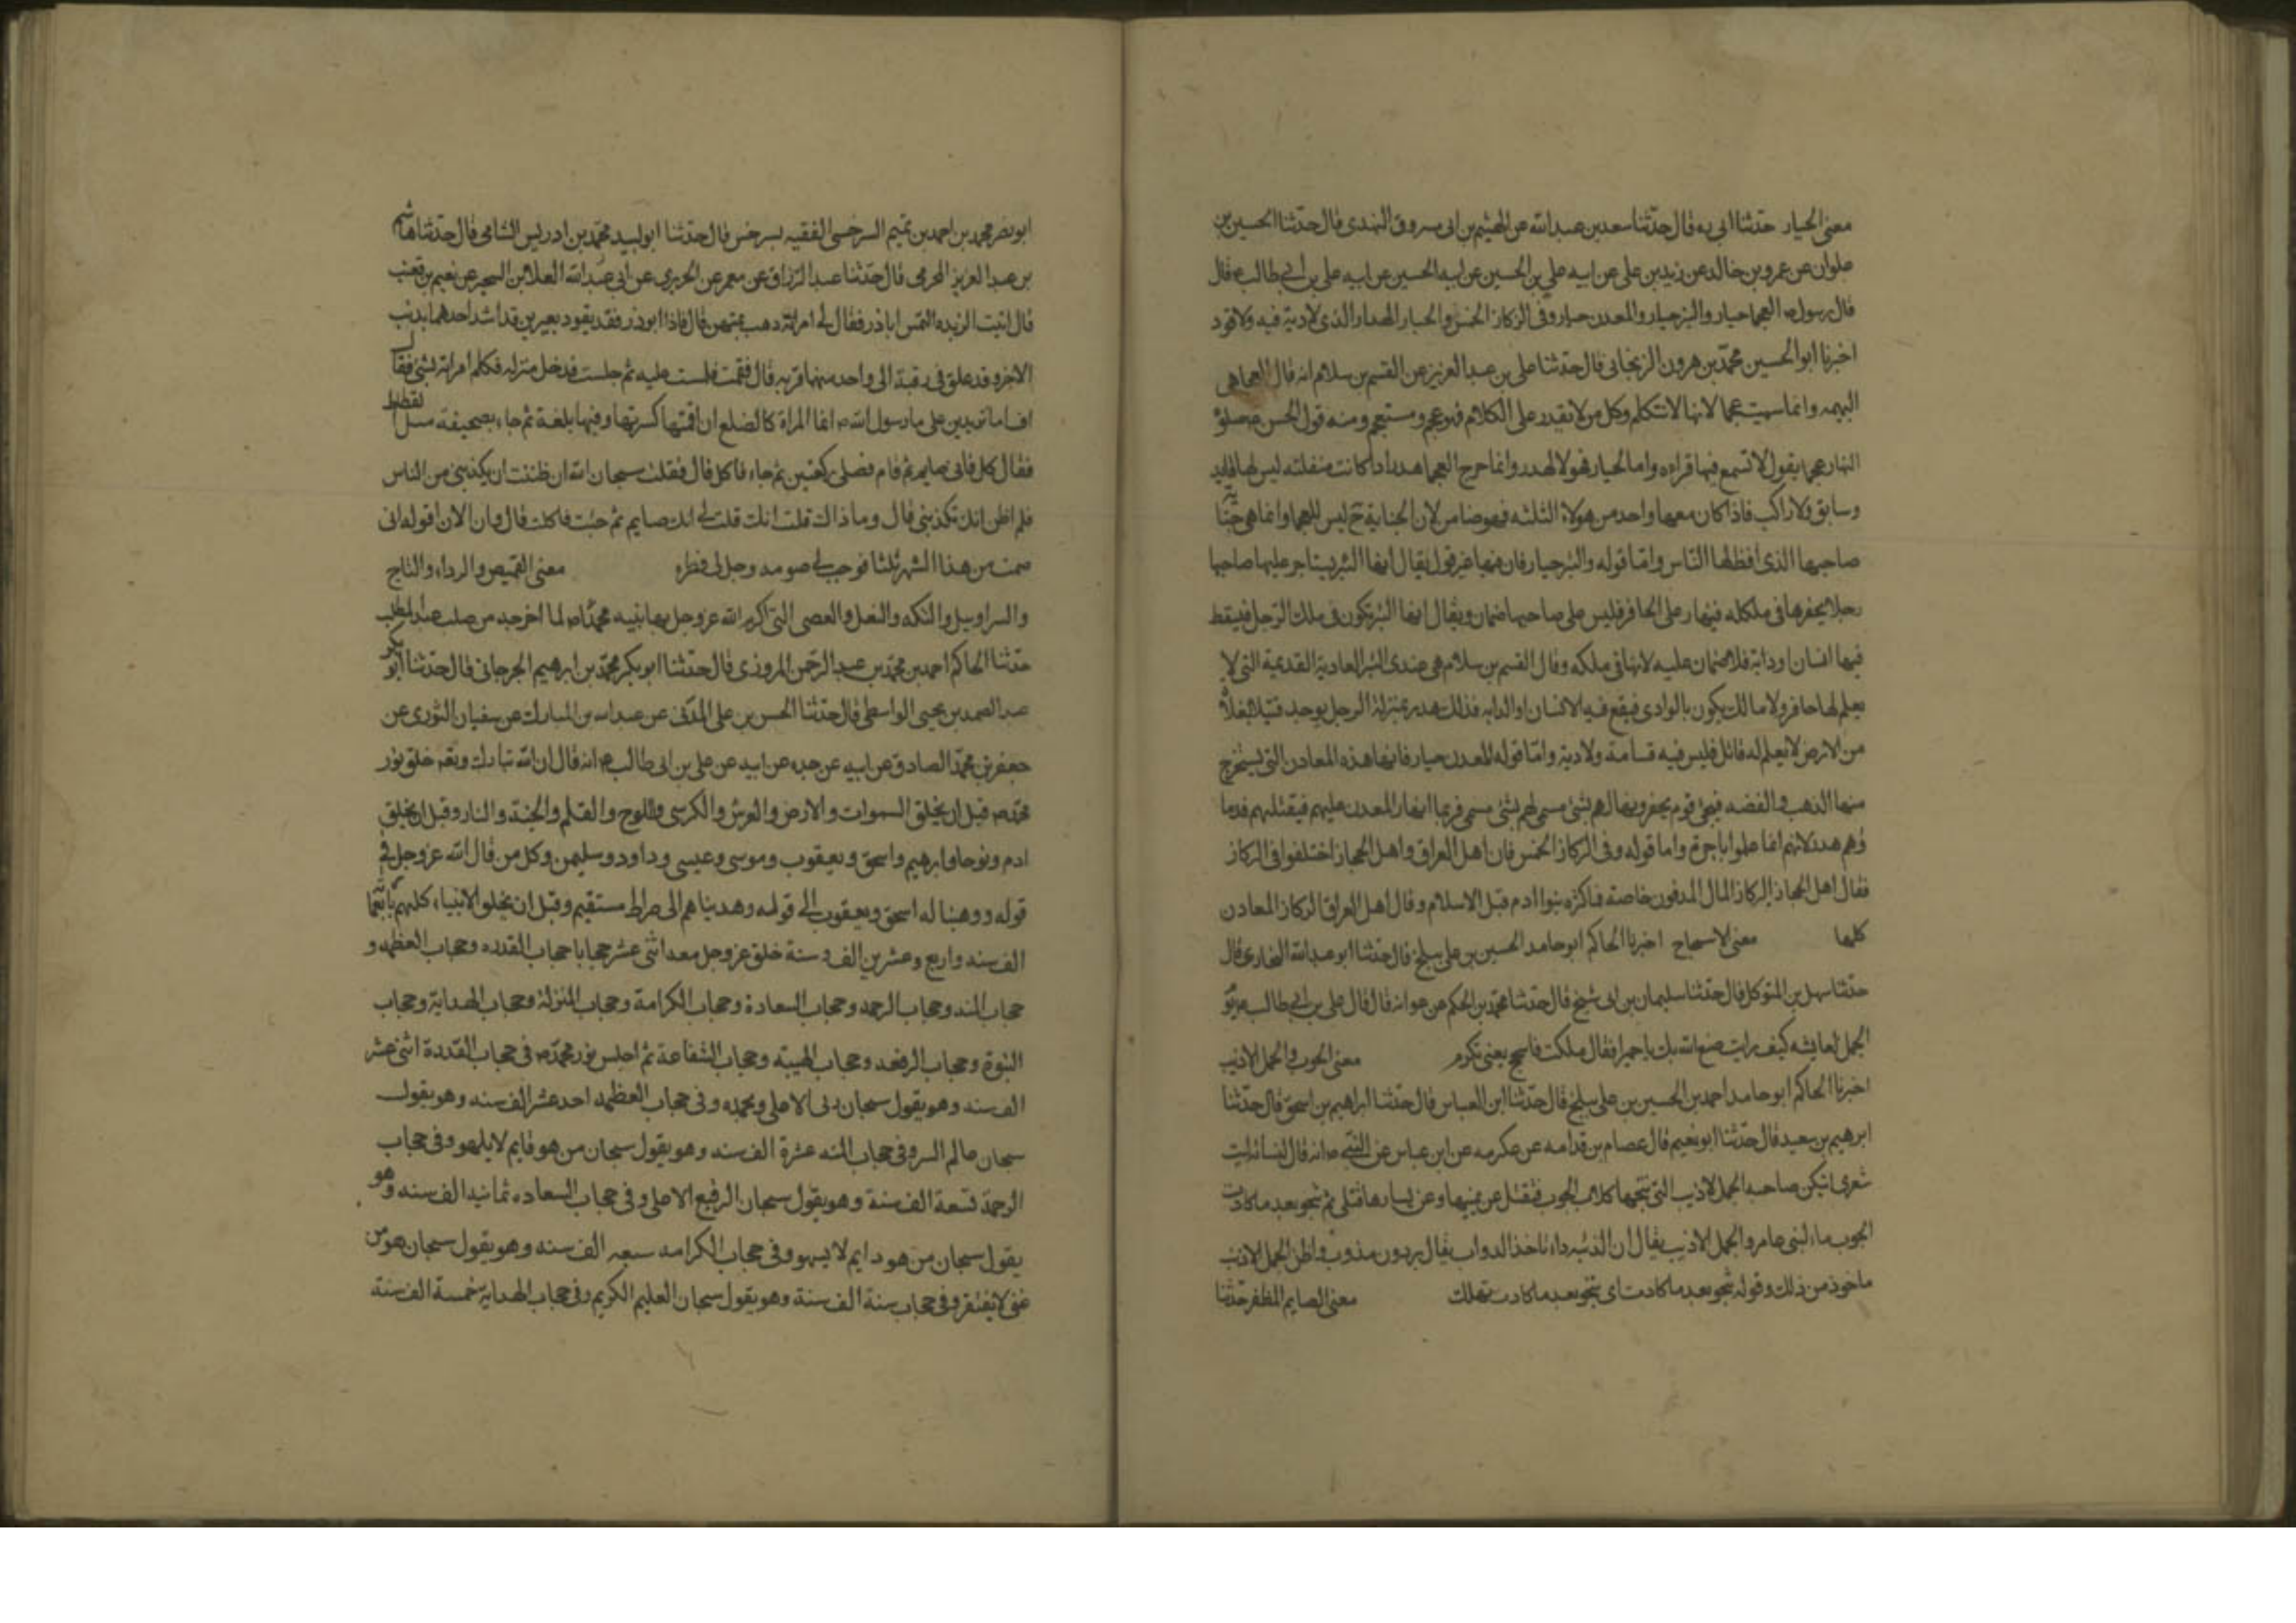 معنى الجبار حدثنا ابى ره قال حدثنا سعد بن عبدالله عن الهيثم بن ابى مسروق النهدى قال حدثنا الحسين بن
علوان عن عمرو بن خالد عن زيد بن على عن ابيه على بن الحسين عن ابيه الحسين عن ابيه على بن ابي طالب ع قال
قال رسول ص العجما جبار والبئر جبار والمعدن جبار وفى الركاز الخمس والجبار الهدر الذى لا دية فيه ولا قود
اخبرنا ابو الحسين محمد بن هرون الزنجانى قال حدثنا على بن عبد العزيز عن القسم بن سلام انه قال العجما هى
البهيمه وانما سميت عجما لانها لا تتكلم وكل من لا يقدر على الكلام فهو اعجم ومستعجم ومنه قول الحسن صلوة
النهار عجما يقول لا تسمع فيها قراءه واما الجبار فهو الهدر وانما جرح العجما هدر اذا كانت منفلته ليس لها قايد
وسايق ولا راكب فاذا كان معها واحد من هولاء الثلثه فهو ضامن لان الجناية ح ليس للعجما وانما هى جناية
صاحبها الذى اوطئها الناس واما قوله والبئر جبار فان فيها غير قول يقال انها البئر يستاجر عليها صاحبها
رجلا يحفرها فى ملكه فينهار على الحافر فليس على صاحبها ضمان ويقال انها البئر تكون فى ملك الرجل فيسقط
فيها انسان او دابة فلا ضمان عليه لانها فى ملكه وقال القسم بن سلام هى عندى البئر العادية القديمة التى لا
يعلم لها حافر ولا مالك يكون بالوادى فيقع فيه الانسان او الدابه فذلك هدر بمنزلة الرجل يوجد قتيلا بفلاة
من الارض لا يعلم له قاتل فليس فيه قسامة ولا دية واما قوله المعدن جبار فانها هذه المعادن التى يستخرج
منها الذهب والفضه فيجئ قوم يحفرونها لهم بشئ مسمى فربما انهار المعدن عليهم فيقتلهم فدما
ؤهم هدر لانهم انما عملوا باجرة واما قوله وفى الركاز الخمس فان اهل العراق واهل الحجاز اختلفوا فى الركاز
فقال اهل الحجاز الركاز المال المدفون خاصة مما كنزه بنو ادم قبل الاسلام وقال اهل العراق الركاز المعادن
كلها معنى الاسجاح اخبرنا الحاكم ابو حامد الحسين بن على ببلخ قال حدثنا ابو عبدالله البخارى قال
حدثنا سهل بن المتوكل قال حدثنا سليمان بن ابى شيخ قال حدثنا محمد بن الحكم عن عوانه قال قال على بن ابي طالب ع يوم
الجمل لعايشه كيف رايت صنع الله بك يا حميرا فقال ملكت فاسجح يعنى تكرم معنى الحوب والجمل الادبب
اخبرنا الحاكم ابو حامد احمد بن الحسين بن على ببلخ قال حدثنا ابن العباس قال حدثنا ابراهيم بن اسحق قال حدثنا
ابرهيم بن سعيد قال حدثنا ابو نعيم قال عصام بن قدامه عن عكرمه عن ابن عباس عن النبى ص انه قال لنسائه ليت
شعرى ايتكن صاحبه الجمل الاذيب التى تنبحها كلاب الحوب فيقتل عن يمينها وعن يسارها قتلى ثم تنجو بعد ما كادت
الحوب ماء لبنى عامر والجمل الاذيب يقال ان الذئبه داء ياخذ الدواب يقال برذون مذوب واظن الجمل الاذيب
ماخوذ من ذلك وقوله تنجو بعد ما كادت اى تنجو بعد ما كادت تهلك معنى الصايم المفطر حدثنا
ابو نصر محمد بن احمد بن تميم السرخسى الفقيه بسرخس قال حدثنا ابو لبيد محمد بن ادريس الشامى قال حدثنا هاشم
بن عبد العزيز المخرمى قال حدثنا عبد الرزاق عن معمر عن الجريرى عن ابى عبدالله العلا بن السحير عن نعيم بن قعنب
قال اتيت الربذه التمس اباذر فقال لى امراته ذهب يمتهن قال فاذا ابوذر فقد يقود بعيرين قد اشد احدهما بذنب
الاخر وقد علق فى رقبة الى واحد منهما قربه قال فقمت فلست عليه ثم جلست فدخل منزله فكلم امراته بشئ فقال
اف اما تزيدين على ما رسول الله ص انما المراة كالضلع ان اقمتها كسرتها وفيها بلغة ثم جاء بصحيفة مسل القطاط
فقال كل فانى صايم ثم قام فصلى ركعتين ثم جاء فاكل قال فقلت سبحان الله ان ظننت ان يكذبنى من الناس
فلم اظن انك تكذبنى قال وما ذاك قلت انك قلت لى انك صايم ثم جئت فاكلت قال وان الان اقوله انى
صمت من هذا الشهر ثلثا فوجب لى صومه وحل لى فطره معنى القميص والرداء والتاج
والسراويل والتكه والنعل والعصى التى اكرم الله عز وجل بها نبيه محمدا ص لما اخرجه من صلب عبد المطلب
حدثنا الحاكم احمد بن محمد بن عبد الرحمن المروزى قال حدثنا ابو بكر محمد بن ابرهيم الجرجانى قال حدثنا ابو بكر
عبد الصمد بن يحيى الواسطى قال حدثنا الحسن بن على المدنى عن عبدالله بن المبارك عن سفيان الثورى عن
جعفر بن محمد الصادق عن ابيه عن جده عن ابيه عن على بن ابى طالب ع انه قال ان الله تبارك وتعه خلق نور
محمد ص قبل ان يخلق السموات والارض والعرش والكرسى واللوح والقلم والجنة والنار وقبل ان يخلق
ادم ونوحا وابرهيم واسحق ويعقوب وموسى وعيسى وداود وسليمن وكل من قال الله عز وجل فى
قوله ووهبنا له اسحق ويعقوب الى قوله وهديناهم الى صراط مستقيم وقبل ان يخلق الانبياء كلهم
الف سنه واربع وعشرين الف سنة خلق عز وجل معه اثنى عشر حجابا حجاب القدره وحجاب العظمه و
حجاب المنه وحجاب الرحمه وحجاب السعادة وحجاب الكرامة وحجاب المنزلة وحجاب الهداية وحجاب
النبوة وحجاب الرفعه وحجاب الهيبة وحجاب الشفاعة ثم احبس نور محمد ص فى حجاب القدرة اثنى عشر
الف سنه وهو يقول سبحان ربى الاعلى وبحمده وفى حجاب العظمه احد عشر الف سنه وهو يقول
سبحان عالم السر وفى حجاب المنه عشرة الف سنه وهو يقول سبحان من هو قايم لا يلهو وفى حجاب
الرحمة تسعة الف سنة وهو يقول سبحان الرفيع الاعلى وفى حجاب السعاده ثمانيه الف سنه وهو
يقول سبحان من هو دايم لا يسهو وفى حجاب الكرامه سبعه الف سنه وهو يقول سبحان من هو
غنى لا يفتقر وفى حجاب ستة الف سنة وهو يقول سبحان العليم الكريم وفى حجاب الهداية خمسة الف سنة